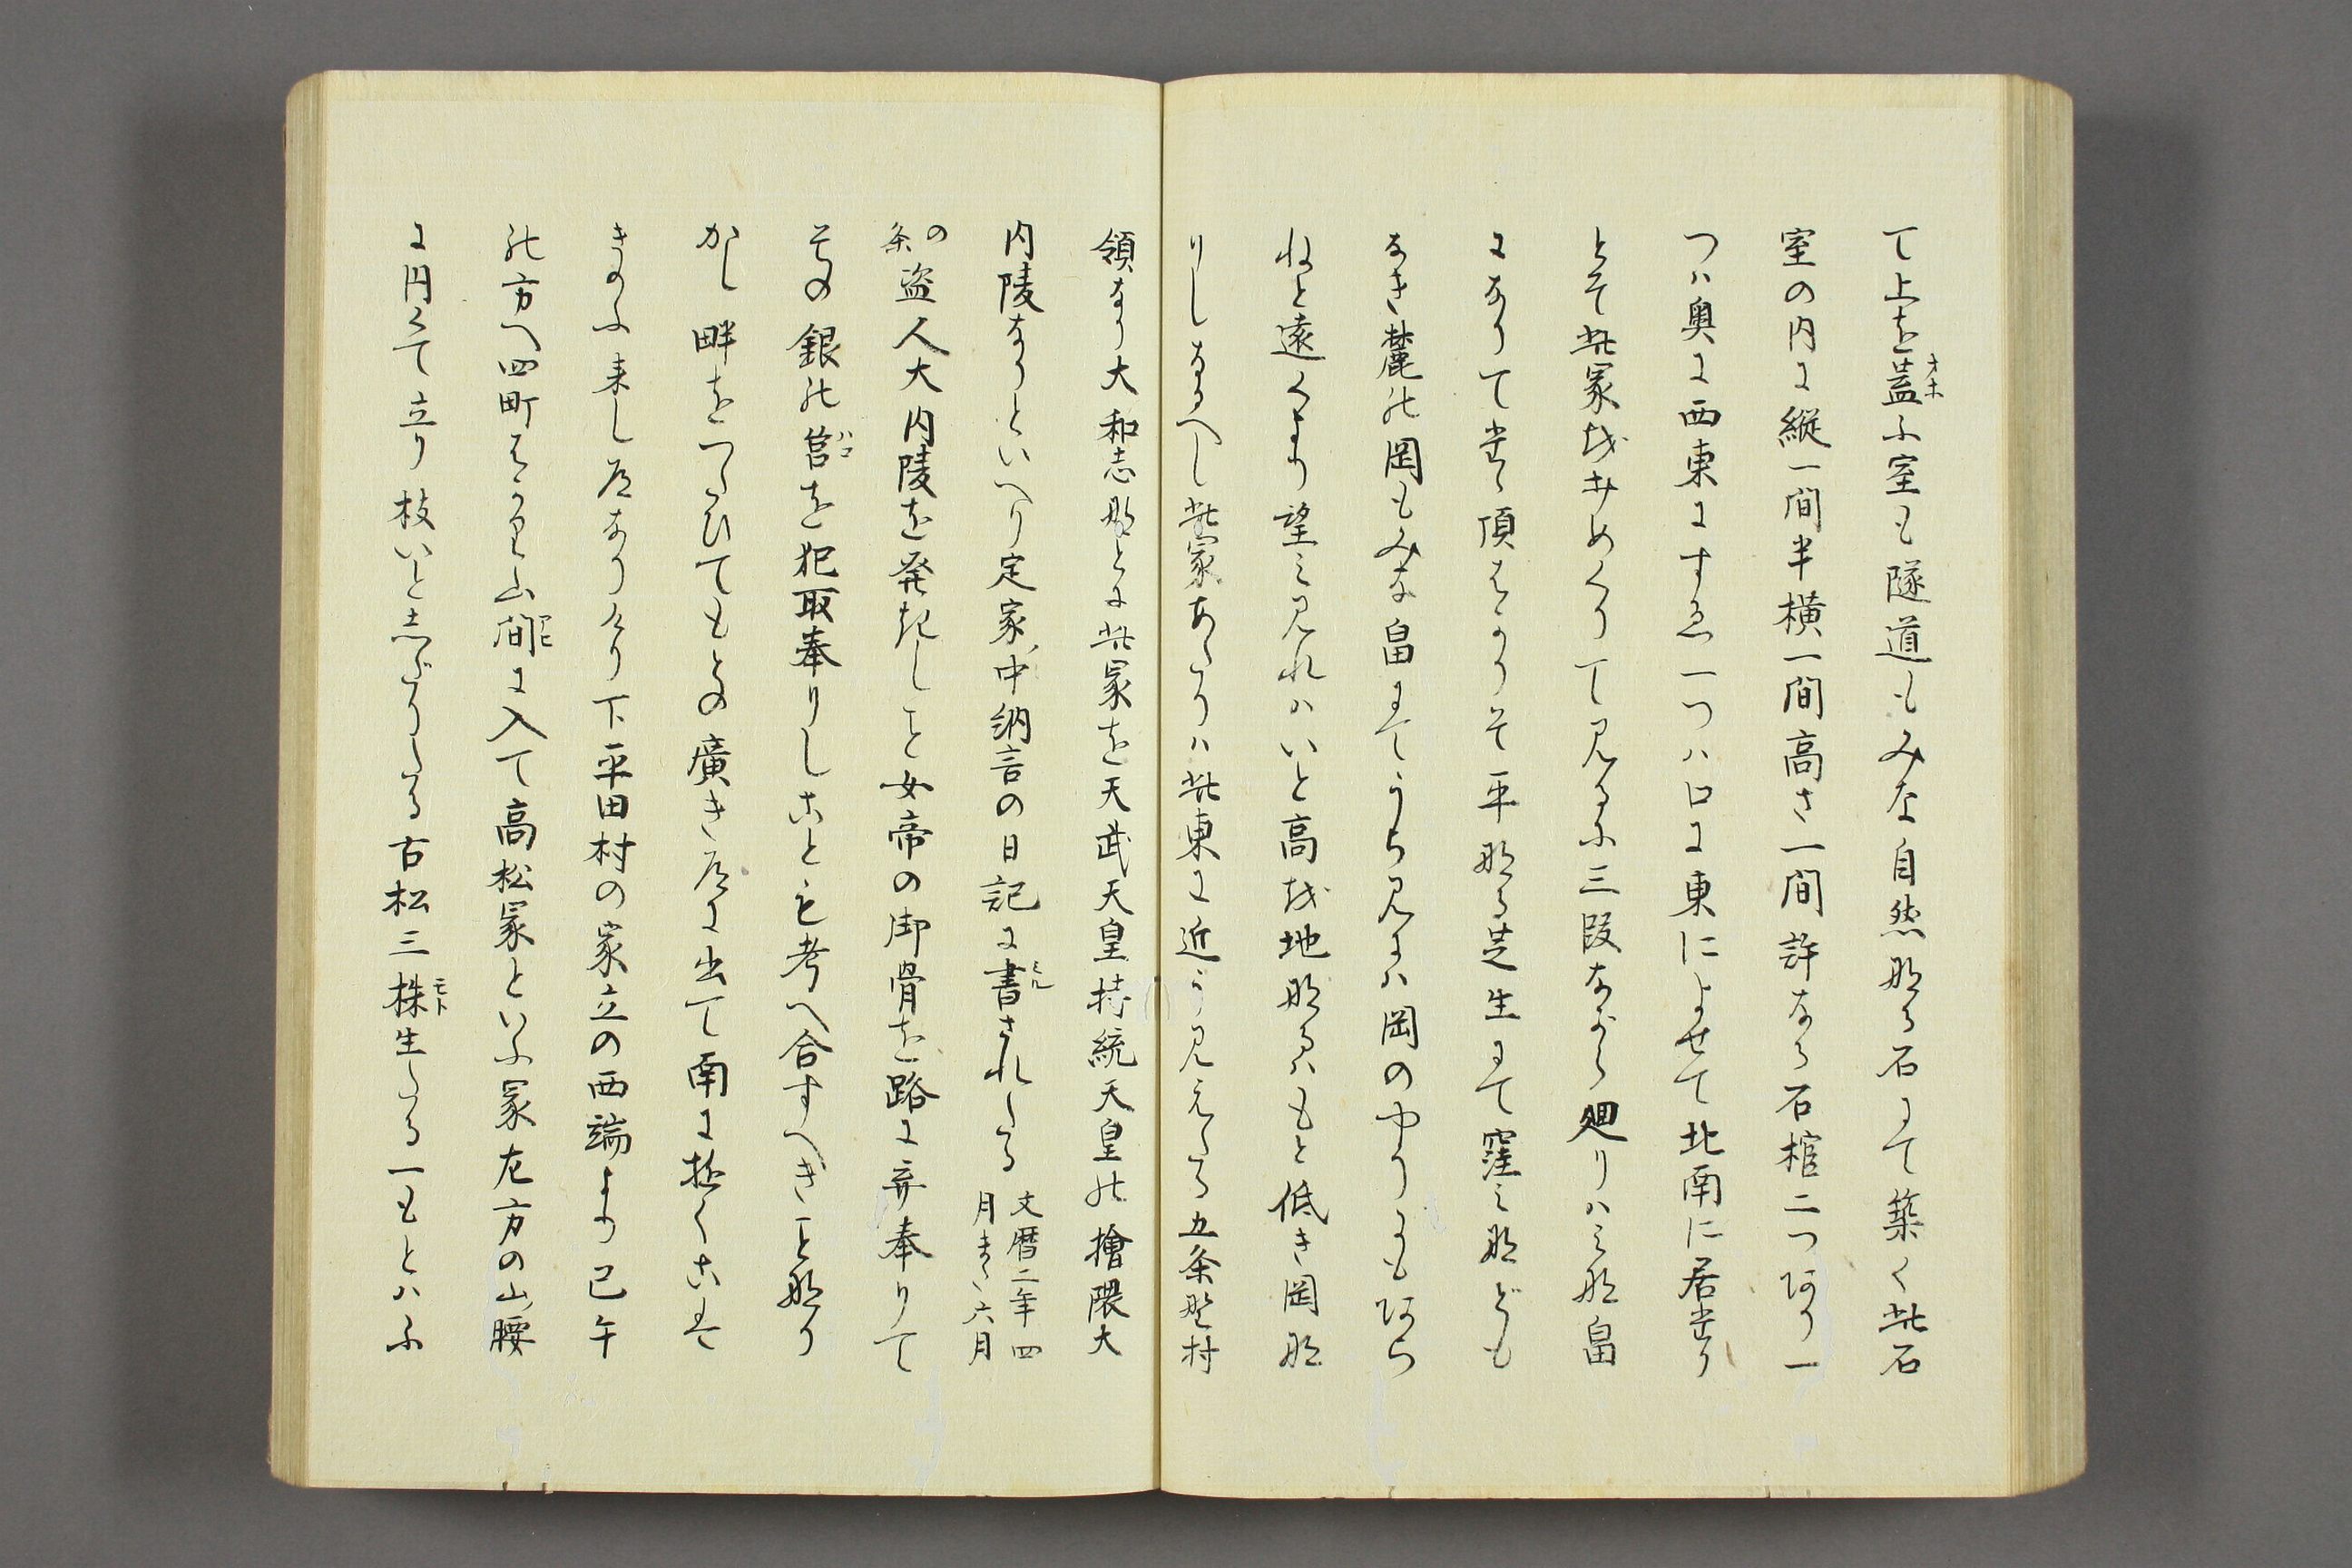 て上を蓋ふ室も隧道もみな自然那る石にて築く此石
室の内に縦一間半横一間高さ一間許なる石棺二つ阿り一
つハ奥に西東にすゑ一つハ口に東によせて北南に居さり
とそ此冢越みめくりて見るに三段ながら廻りハミ那畠
になりてさゝ頂はかりそ平那る芝生にて窪ミ那ども
なき麓の岡もみな畠にてうち見にハ岡のやうにも阿ら
ねと遠くより望ミ見れハいと高越地那るハもと低き岡那
りしなるへし此冢あたりハ此東に近う見えたる五条野村
領なり大和志那とに此冢を天武天皇持統天皇の檜隈大
内陵なりといへり定家中納言の日記に書されたる 文暦二年四月また六月
の条 盗人大内陵を発起しこと女帝の御骨を路に弃奉りて
その銀の筥を犯取奉りしことも考へ合すへきこと那り
かし畔をつたひてもとの廣き道に出て南に極くこは
きのふ来し道なりけり下平田村の家立の西端より巳午
の方へ四町はかり山間に入て高松冢といふ冢左方の山腰
に円くて立り枝いと志だりたる古松三株生たる一もとハふ